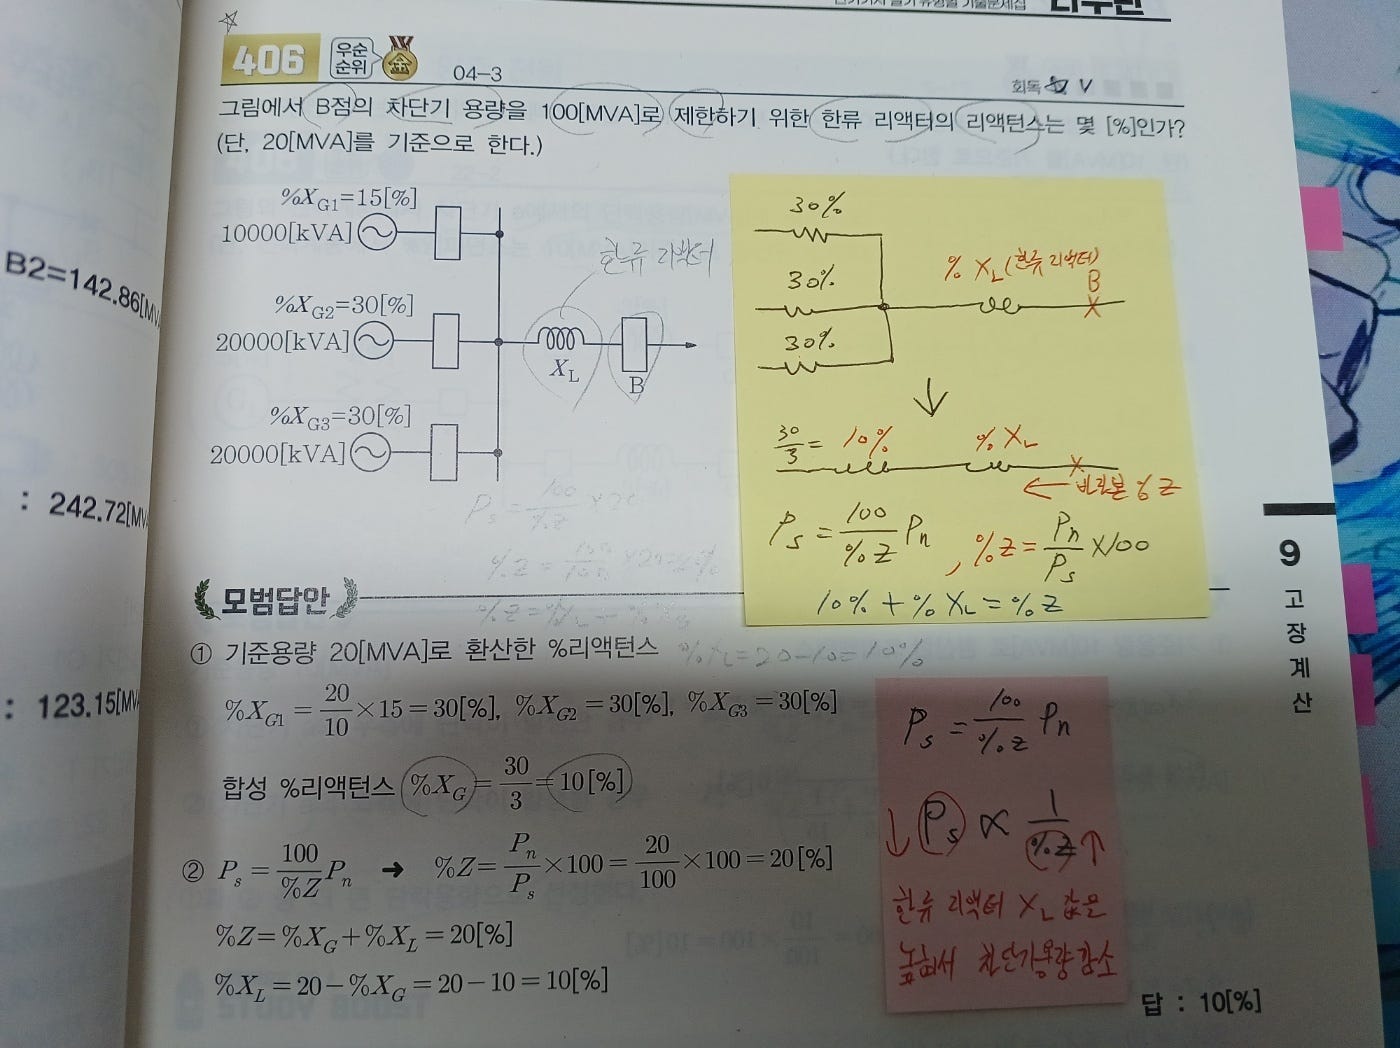 406 우선순위 金 04-3
회독
그림에서 B점의 차단기 용량을 100[MVA]로 제한하기 위한 한류 리액터의 리액턴스는 몇 [%]인가?
(단, 20[MVA]를 기준으로 한다.)
%X_G1=15[%]
10000[kVA]
%X_G2=30[%]
20000[kVA]
%X_G3=30[%]
20000[kVA]
한류 리액터
X_L
B
30%
30%
30%
% X_L (한류 리액터)
B
30/3 = 10%
% X_L
바라본 % Z
P_s = 100/%Z P_n , %Z = P_n/P_s ×100
10% + % X_L = % Z
모범답안
① 기준용량 20[MVA]로 환산한 %리액턴스
%X_L=20-10=10%
%X_G1 = 20/10 ×15 = 30[%], %X_G2 = 30[%], %X_G3 = 30[%]
합성 %리액턴스 %X_G = 30/3 = 10[%]
② P_s = 100/%Z P_n ➜ %Z = P_n/P_s ×100 = 20/100 ×100 = 20[%]
%Z = %X_G + %X_L = 20[%]
%X_L = 20 - %X_G = 20 - 10 = 10[%]
P_s = 100/%Z P_n
↓ P_s ∝ 1/%Z ↑
한류 리액터 X_L 값을
높여서 차단기용량 감소
답 : 10[%]
9
고
장
계
산
B2=142.86[M
: 242.72[MV
: 123.15[MV